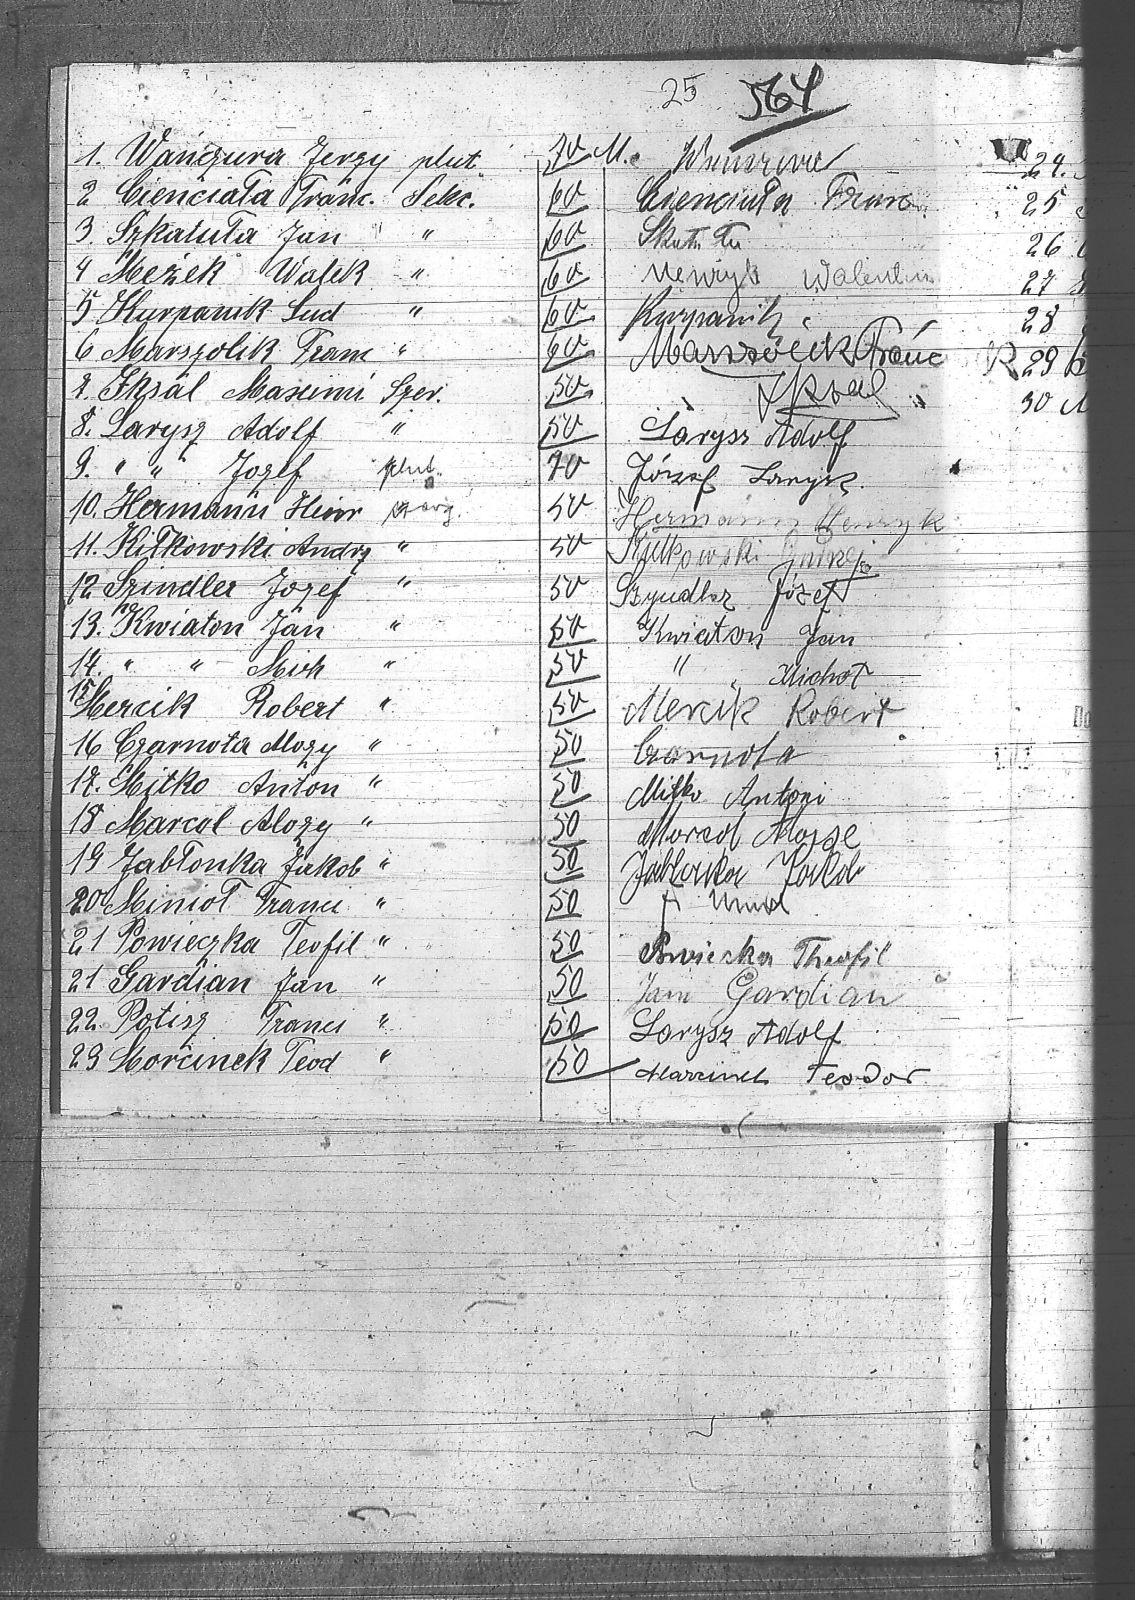 25 564
1. Wańczura Jerzy plut. 70 M.
2 Cienciała Franc. Sekc. 60 Cienciała Franc.
3. Szkatuła Jan " 60
4 Mężek Walek " 60 Walentin
5 Kurpanik Lud " 60 Kurpanik
6 Marszolik Franc " 60 Marszolik Franc
7. Iksal Maximi Szer. 50 Iksal
8. Larysz Adolf " 50 Larysz Adolf
9. " " Jozef plut. 70 Józef Larysz
10. Hermann Heinr szerg. 50 Hermann Henryk
11. Kitkowski Andrz " 50
12 Szindler Jozef " 50 Szyndler Józef
13. Kwiaton Jan " 50 Kwiaton Jan
14. " " Mich " 50 " " Michał
15 Mercik Robert " 50 Mercik Robert
16 Czarnota Alozy " 50 Czarnota
17. Mitko Anton " 50 Mitko Antoni
18 Marcol Alozy " 50 Marcol
19 Jabłonka Jakob " 50 Jabłonka Jakob
20 Minioł Franci " 50
21 Powieczka Teofil " 50 Powieczka Theofil
21 Gardian Jan " 50 Jan Gardian
22. Potisz Franci " 50 Larysz Adolf
23 Morcinek Teod " 50 Teodor
24.
25
26
27
28
29
30